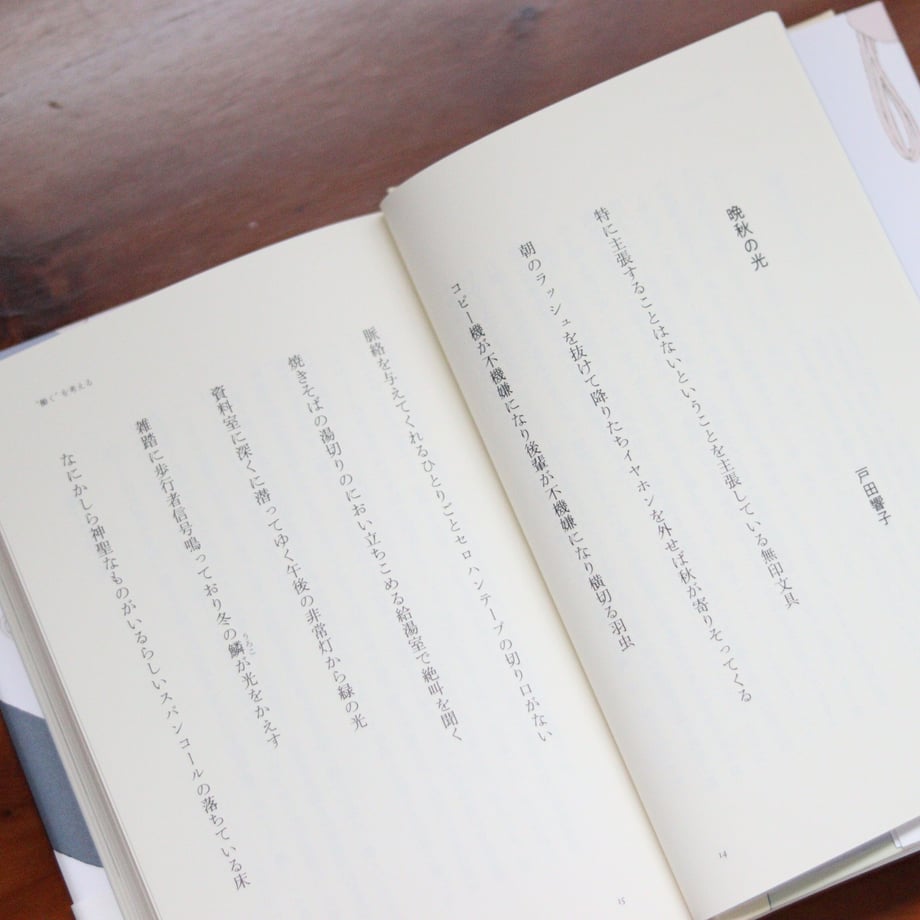 晩秋の光
戸田響子
特に主張することはないということを主張している無印文具
朝のラッシュを抜けて降りたちイヤホンを外せば秋が寄りそってくる
コピー機が不機嫌になり後輩が不機嫌になり横切る羽虫
14
脈絡を与えてくれるひとりごとセロハンテープの切り口がない
焼きそばの湯切りのにおい立ちこめる給湯室で絶叫を聞く
資料室に深くに潜ってゆく午後の非常灯から緑の光
雑踏に歩行者信号鳴っており冬の鱗が光をかえす
うろこ
なにかしら神聖なものがいるらしいスパンコールの落ちている床
“働く”を考える
15